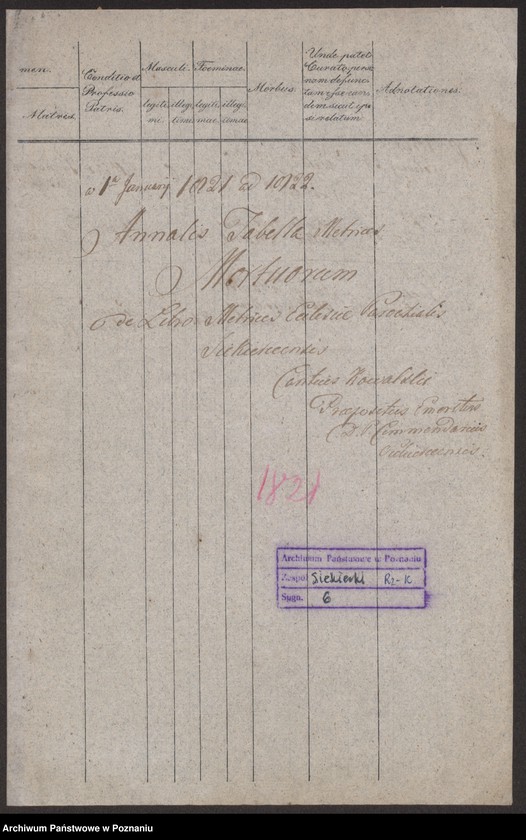 men.
Matris.
Conditio et
Professio
Patris.
Masculi.
Foeminae.
legiti
mi.
illeg.
timi
legiti
mae.
illeg.
itimae.
Morbus.
Unde patet
Curato, per
nam defunc
tam esse
dem sicut ip
se relatum
Adnotationes.
a 1a January 1821 ad 1822.
Annalis Tabella Metrices
Mortuorum
de Libro Metrices Eclesiae Parochialis
Siekiercensis
Kowalski
Praepositus
Commendarius
1821
Archiwum Państwowe w Poznaniu
Zespół Siekierki Rz-K
Sygn. 6
Archiwum Państwowe w Poznaniu